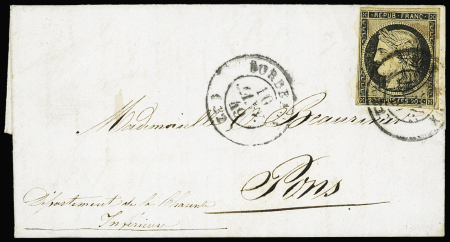 REPUB. FRANC.
BORDEAUX
16
JANV.
49
Mademoiselle
Pons
Département de la Charente
Inférieure